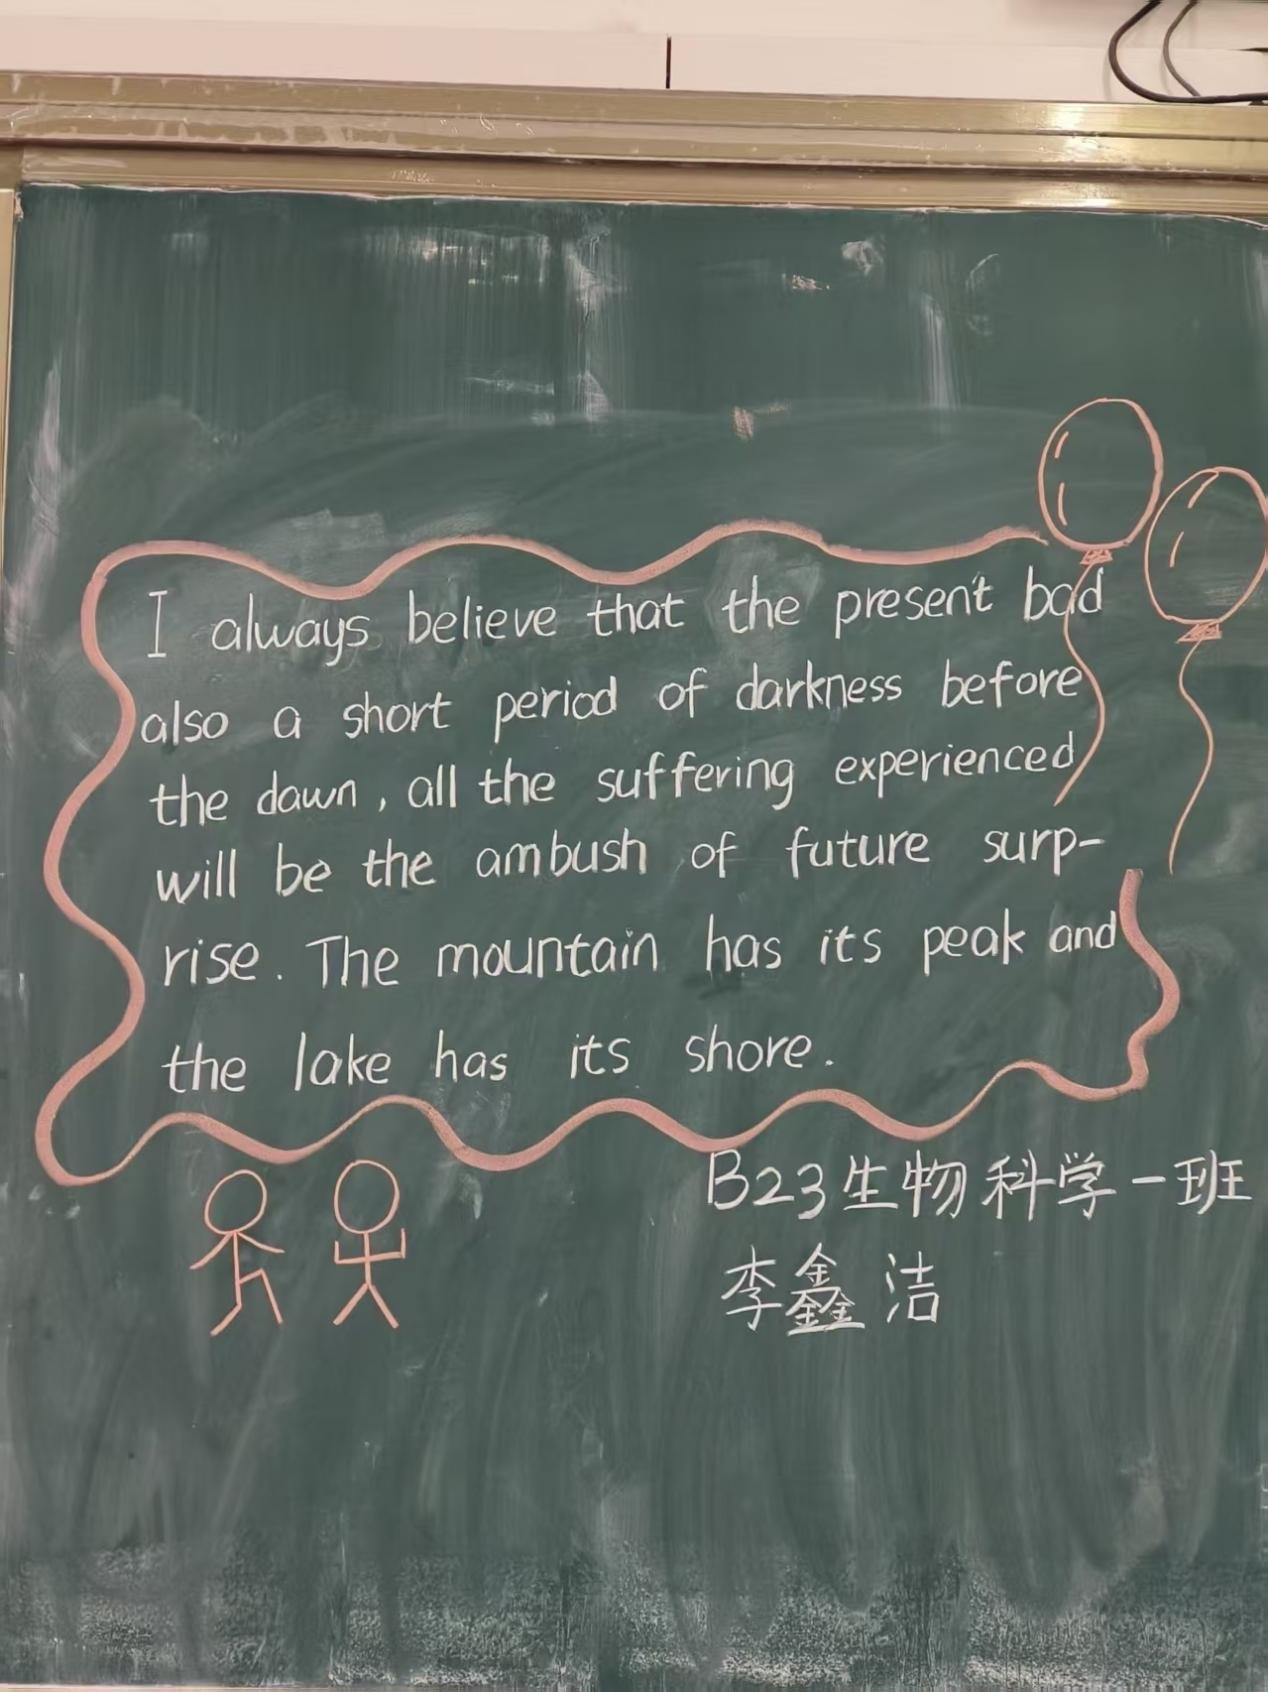 I always believe that the present bad
also a short period of darkness before
the dawn, all the suffering experienced
will be the ambush of future surp-
rise. The mountain has its peak and
the lake has its shore.
B23生物科学一班
李鑫洁